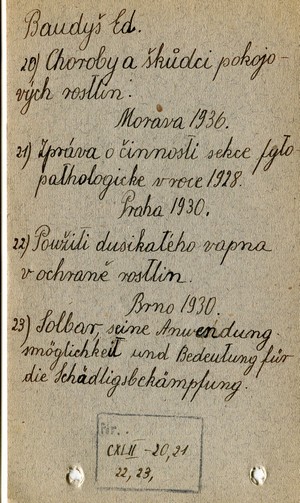 Baudyš Ed.
20) Choroby a škůdci pokojo-
vých rostlin.
Morava 1936.
21) Zpráva o činnosti sekce fyto-
pathologické v roce 1928.
Praha 1930.
22) Použití dusíkatého vapna
v ochraně rostlin.
Brno 1930.
23) Solbar, seine Anwendung-
smöglichkeit und Bedeutung für
die Schädligsbekämpfung.
Nr.
CXLII - 20, 21
22, 23,